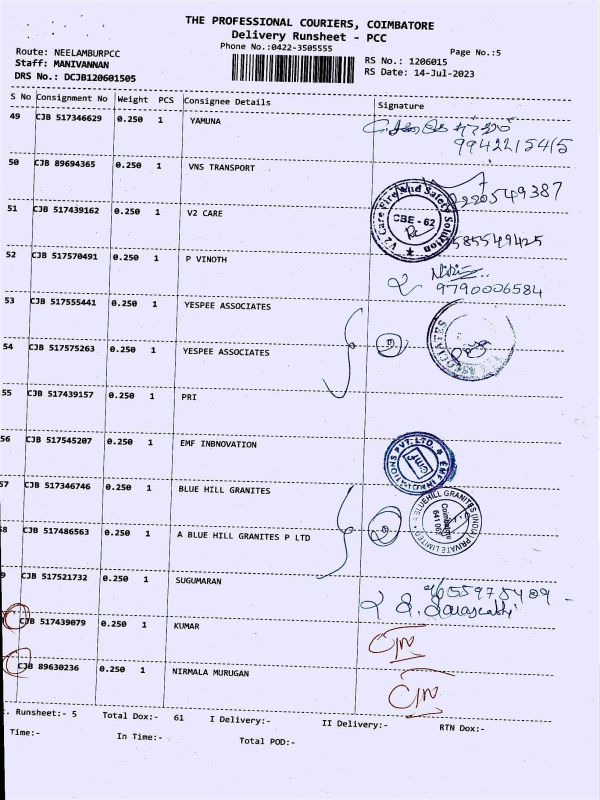 THE PROFESSIONAL COURIERS, COIMBATORE
Delivery Runsheet - PCC
Phone No.:0422-3505555
Page No.:5
Route: NEELAMBURPCC
Staff: MANIVANNAN
DRS No.: DCJB120601505
RS No.: 1206015
RS Date: 14-Jul-2023
S No Consignment No Weight PCS Consignee Details Signature
49 CJB 517346629 0.250 1 YAMUNA
9942215415
50 CJB 89694365 0.250 1 VNS TRANSPORT
549387
51 CJB 517439162 0.250 1 V2 CARE
V2 Care Fire and Safety Solution
CBE - 62
585549425
52 CJB 517570491 0.250 1 P VINOTH
9790006584
53 CJB 517555441 0.250 1 YESPEE ASSOCIATES
54 CJB 517575263 0.250 1 YESPEE ASSOCIATES
55 CJB 517439157 0.250 1 PRI
56 CJB 517545207 0.250 1 EMF INBNOVATION
57 CJB 517346746 0.250 1 BLUE HILL GRANITES
BLUEHILL GRANITES (INDIA) PRIVATE LIMITED
Coimbatore
641 062
58 CJB 517486563 0.250 1 A BLUE HILL GRANITES P LTD
9 CJB 517521732 0.250 1 SUGUMARAN
CJB 517439079 0.250 1 KUMAR
CJB 89630236 0.250 1 NIRMALA MURUGAN
. Runsheet:- 5 Total Dox:- 61 I Delivery:- II Delivery:- RTN Dox:-
Time:- In Time:- Total POD:-